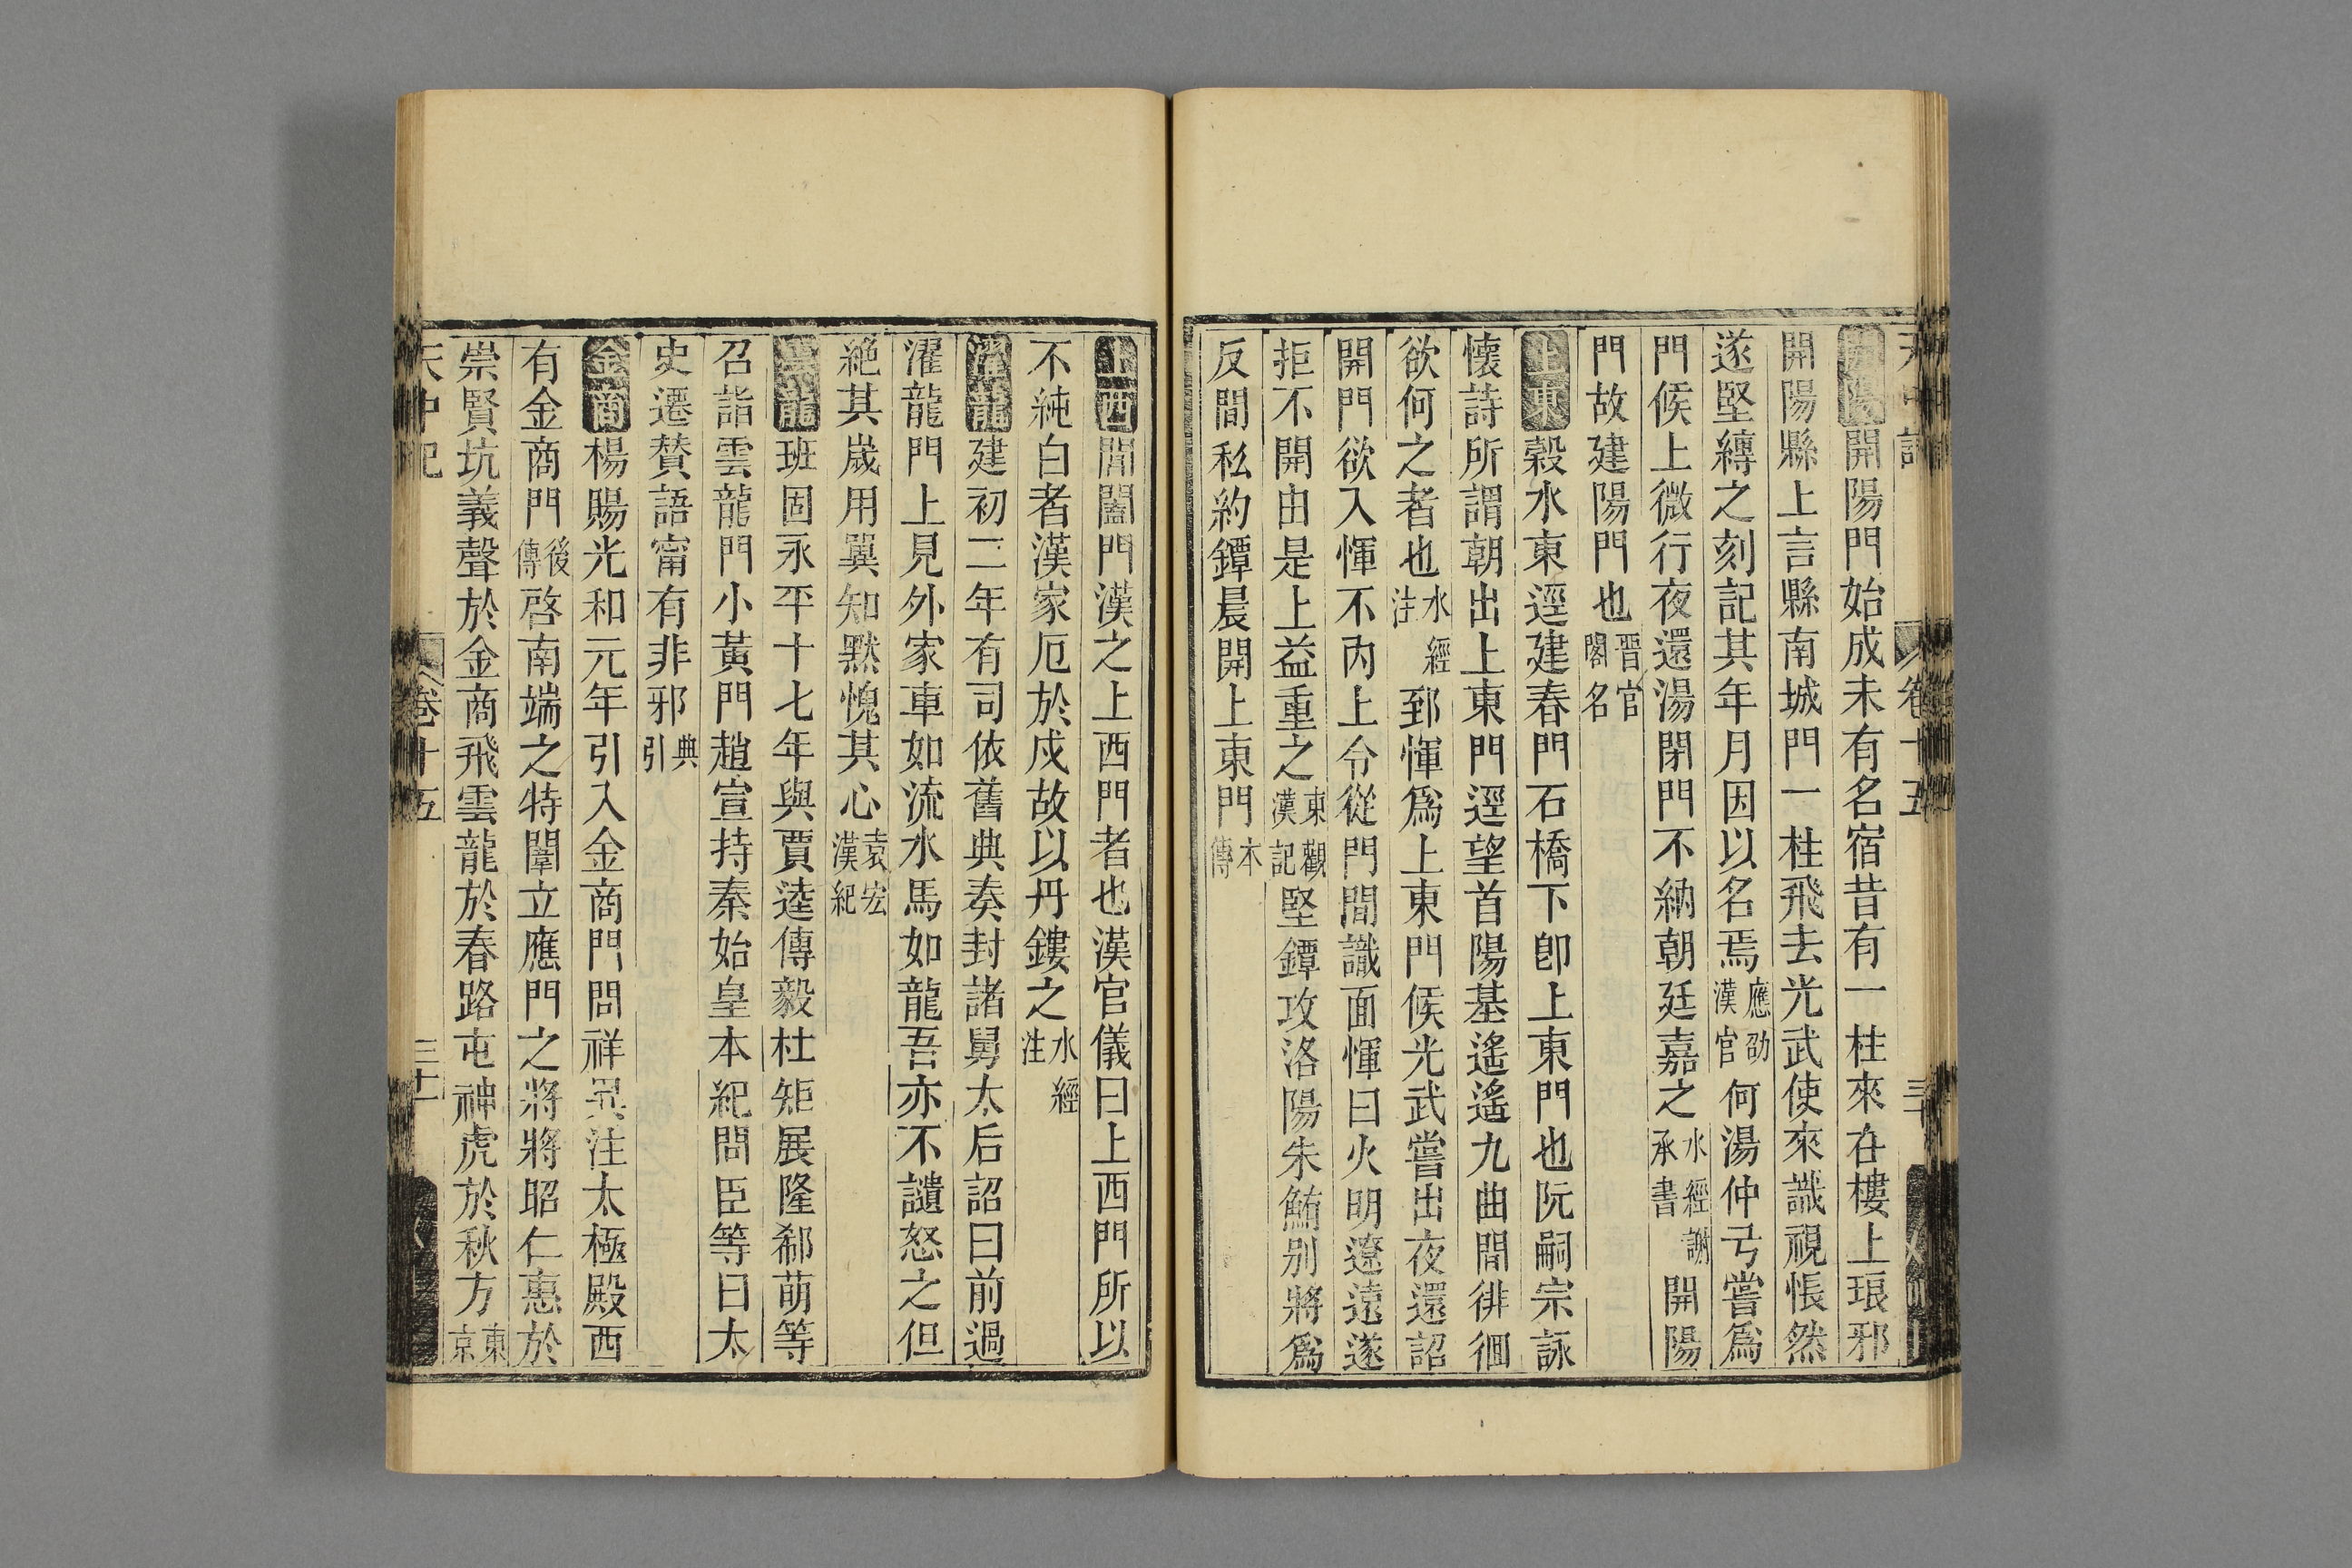 開陽開陽門始成未有名宿昔有一柱來在樓上琅邪
開陽縣上言縣南城門一柱飛去光武使來識視悵然
遂堅縳之刻記其年月因以名焉應劭漢官何湯仲弓嘗爲
門候上微行夜還湯閉門不納朝廷嘉之水經謝承書開陽
門故建陽門也晉官閣名
上東榖水東逕建春門石橋下卽上東門也阮嗣宗詠
懷詩所謂朝出上東門逕望首陽基遙遙九曲間徘徊
欲何之者也水經注郅惲爲上東門候光武嘗出夜還詔
開門欲入惲不內上令從門間識面惲曰火明遼遠遂
拒不開由是上益重之東觀漢記堅鐔攻洛陽朱鮪別將爲
反間私約鐔晨開上東門本傳
上西閶闔門漢之上西門者也漢官儀曰上西門所以
不純白者漢家厄於戍故以丹鏤之水經注
濯龍建初二年有司依舊典奏封諸舅太后詔曰前過
濯龍門上見外家車如流水馬如龍吾亦不譴怒之但
絶其歲用冀知默愧其心袁宏漢紀
雲龍班固永平十七年與賈逵傳毅杜矩展隆郗萌等
召詣雲龍門小黃門趙宣持秦始皇本紀問臣等曰太
史遷贊語甯有非邪典引
金商楊賜光和元年引入金商門問祥異注太極殿西
有金商門後傳啓南端之特闈立應門之將將昭仁惠於
崇賢抗義聲於金商飛雲龍於春路屯神虎於秋方東京
天中記 卷十五 三十一